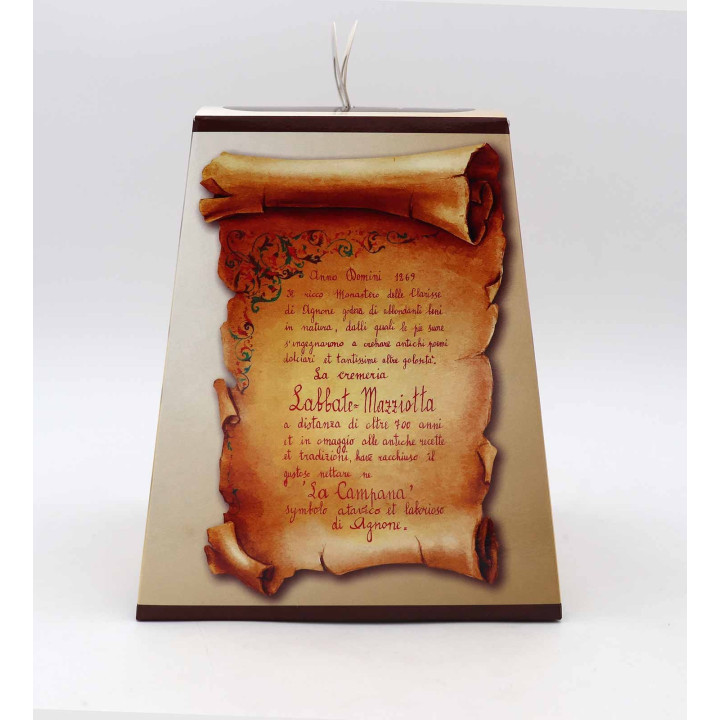 Anno Domini 1269
Il ricco Monastero delle Clarisse
di Agnone godeva di abbondanti beni
in natura, dalli quali le pie suore
s'ingegnarono a creare antichi poemi
dolciari et tantissime altre golosità.
La cremeria
Labbate=Mazziotta
a distanza di oltre 700 anni
et in omaggio alle antiche recette
et tradizioni, have racchiuso il
gustoso nettare ne
'La Campana'
symbolo atavico et laborioso
di Agnone.=